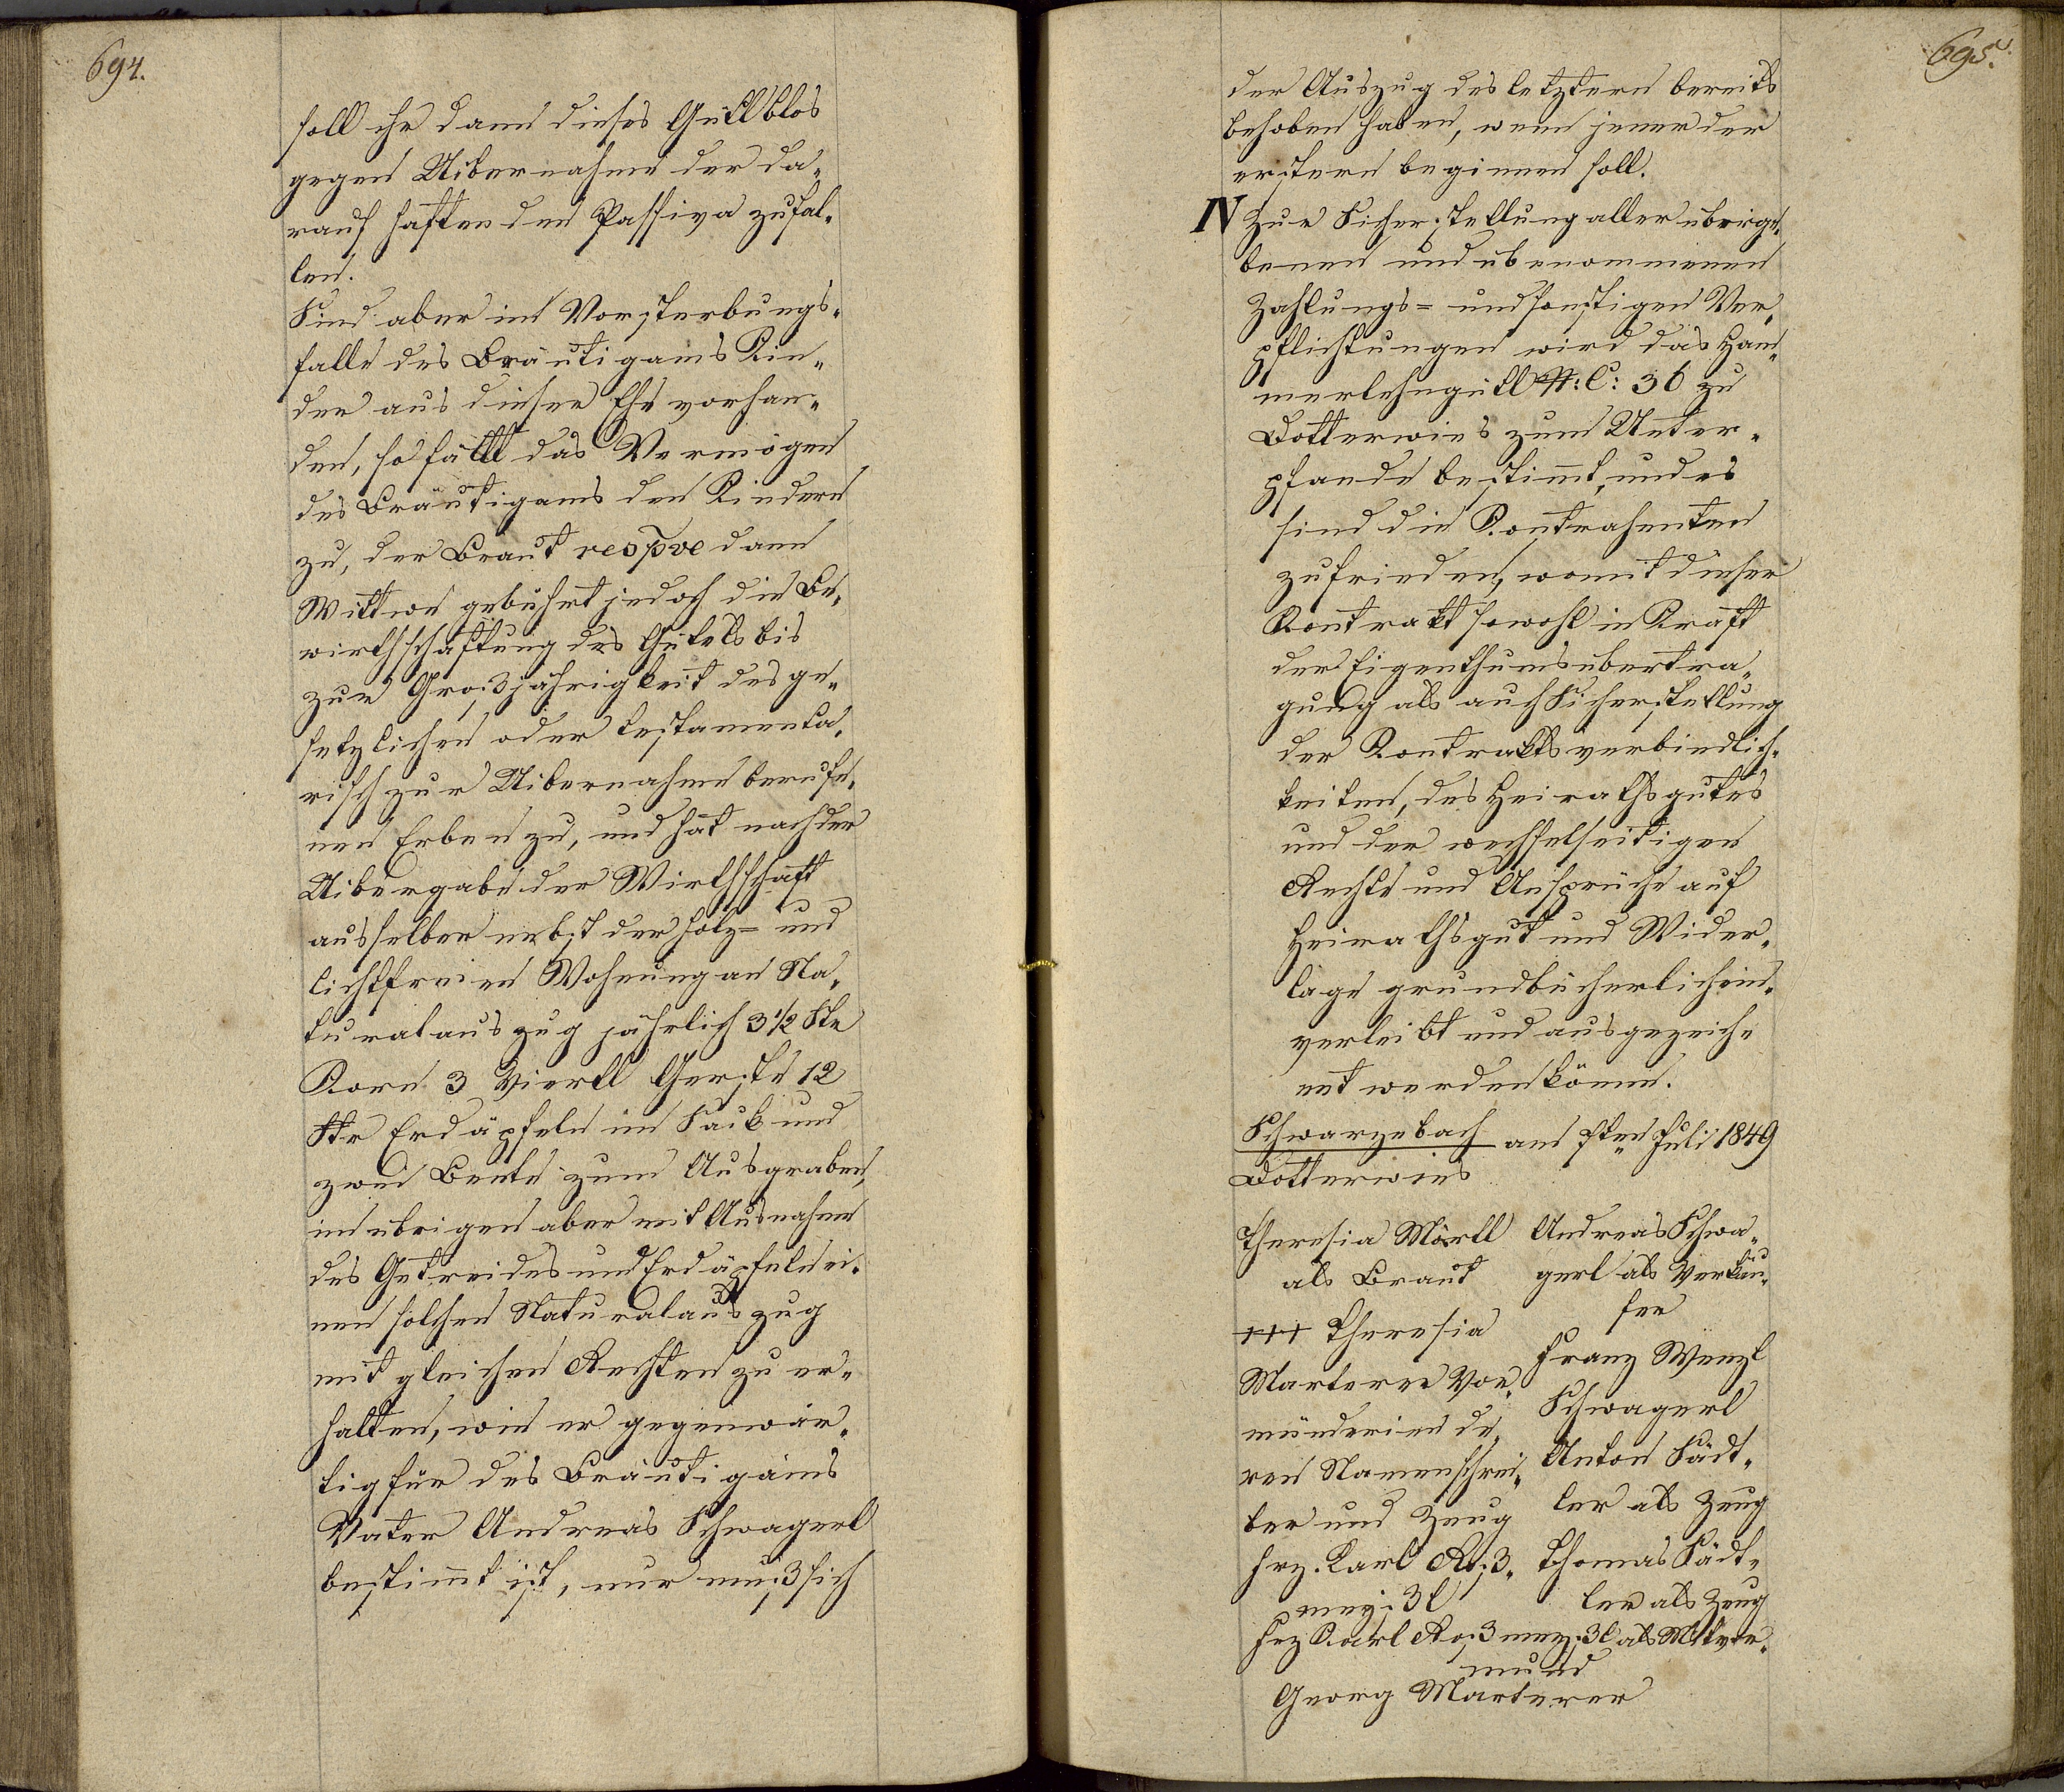 694.
soll ihr dann dieses Gütl blos
gegen Uibernahme der da„
rauf haftenden Passiva zufal„
len.
Sind aber im Vorsterbungs„
falle des Bräutigams Kin„
der aus dieser Ehe vorhan„
den, so fällt das Vermögen
des Bräutigams den Kindern
zu, der Braut respve dann
Wittwe gebührt jedoch die Be„
wirthschaftung des Gütels bis
zur Großjährigkeit des ge„
setzlichen oder testamenta„
risch zur Uibernahme berufe„
nen Erben zu, und hat nach der
Uibergabe der Wirthschaft
aus selber nebst der holz= und
lichtfreien Wohnung an Na„
turalauszug jährlich 3 1/2 Str
Korn 3 Viertl Gerste 12
Str Erdäpfeln im Sack und
zwei Beete zum Ausgraben,
im übrigen aber mit Ausnahme
des Getreides und Erdäpfeln ei„
nen solchen Naturalauszug
mit gleichen Rechten zu er„
halten, wie er gegenwär„
tig für des Bräutigams
Vater Andreas Schwagerl
bestimt ist, nur muß sich
695.
der Auszug des letztern bereits
behoben haben, wenn jener der
erstern beginnen soll.
IV Zur Sicherstellung aller überge„
benen und übenommenen
Zahlungs= und sonstigen Ver„
pflichtungen wird das Ham„
merlehngütl N: C: 36 zu
Dotterwies zum Unter„
pfande bestimt, und es
sind die Kontrahenten
zufrieden, womit dieser
Kontrakt sowohl in Kraft
der Eigenthumsübertra„
gung als auch Sicherstellung
der Kontraktsverbindlich„
keiten, des Heirathsgutes
und der wechselseitigen
Rechte und Ansprüche auf
Heirathsgut und Wider„
lage grundbücherlich ein„
verleibt und ausgezeich„
net werden könne.
Schwarzebach am 7ten Juli 1849
Dotterwies
Theresia Märtl
als Braut
+++ Theresia
Marterer Vor„
münderin de„
ren Namenschrei„
ber und Zeug
Frz. Karl Roß„
meißl
Andreas Schwa„
gerl als Verkäu„
fer
Franz Wenzl
Schwagerl
Anton Südt„
ler als Zeug
Thomas Südt„
ler als Zeug
Frz Karl Roßmeißl als Mitvor„
mund
Georg Marterer